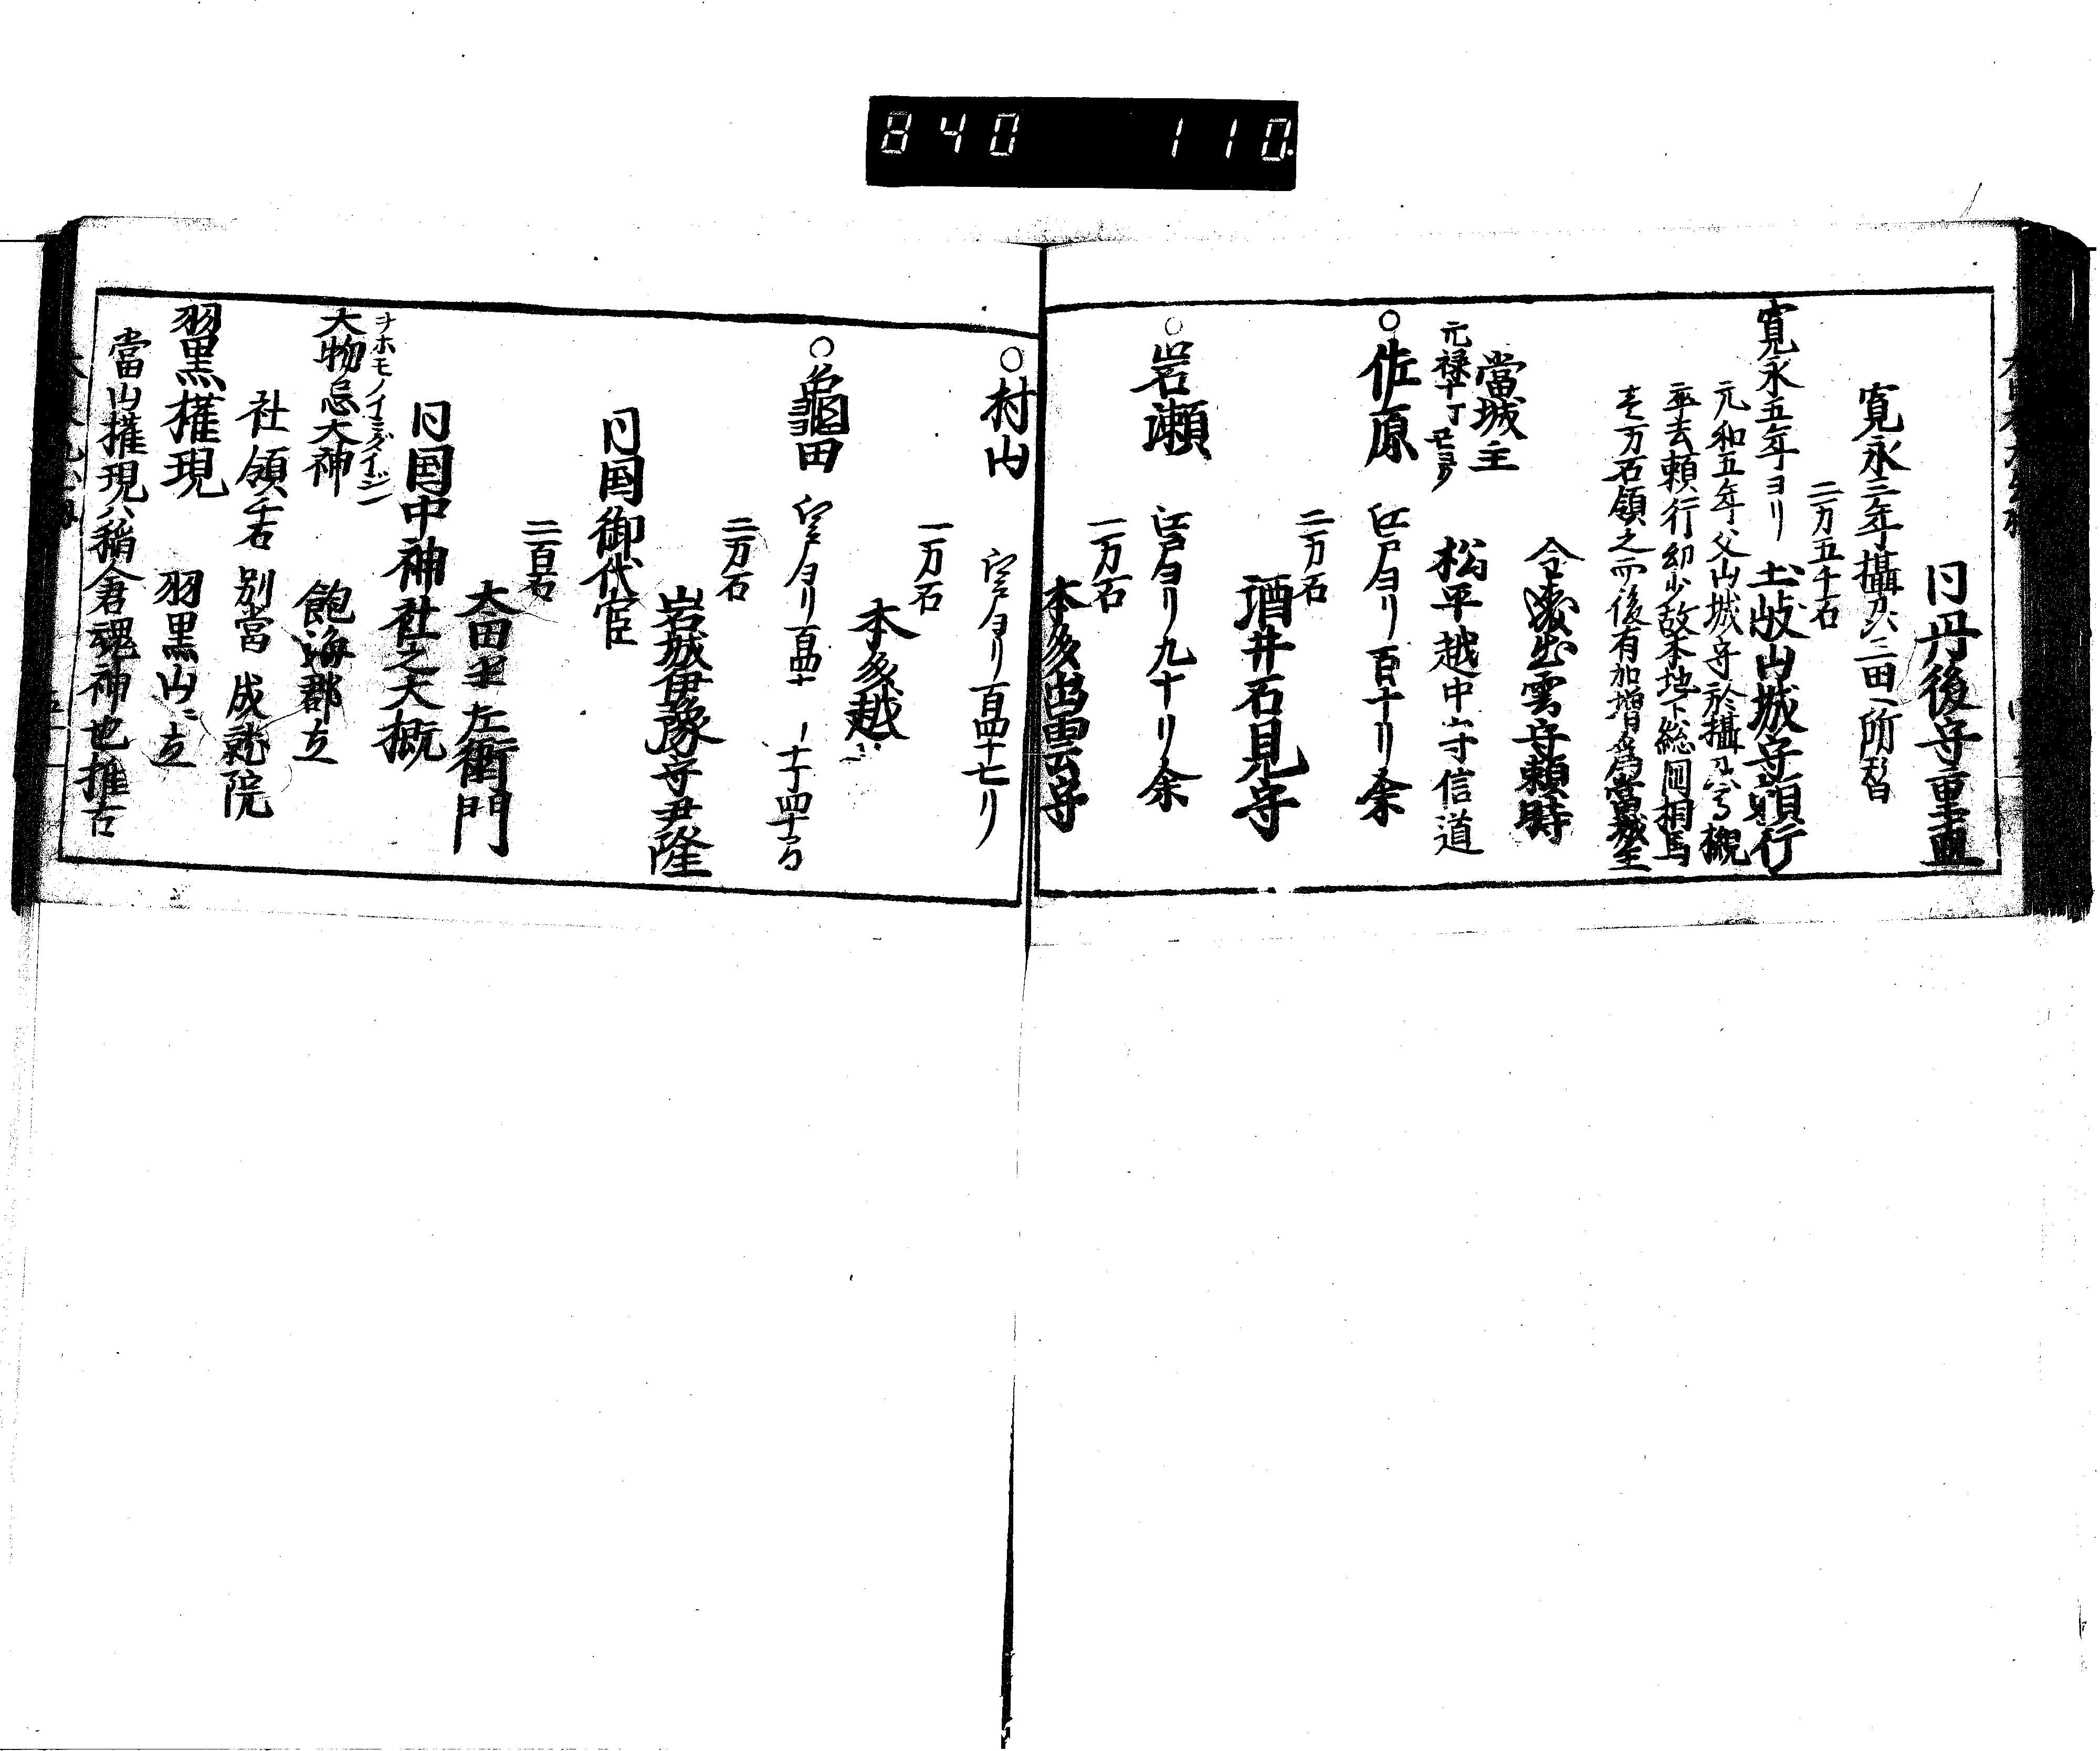 840 110.
同丹後守重直
寛永三年攝刕三田一所替
二万五千石
寛永五年ヨリ 土岐山城守頼行
元和五年父山城守於攝刕高槻
卒去頼行幼少故本地下総囯相馬
壱万石領之而後有加増為當城主
令嫡出雲守頼時
當城主 松平越中守信道
元禄十丁
○佐原 江戸ヨリ百十リ余
二万石
酒井石見守
○岩瀬 江戸ヨリ九十リ余
一万石
本多出雲守
○村山 江戸ヨリ百四十七リ
一万石
本多越
○龜田 江戸ヨリ百四十
二万石
岩城伊豫守尹隆
同国御代官
二百石
太田 左衛門
同国中神社之大概
ヲホモノイミダイジン
大物忌大神 飽海郡立
社領 別當 成就院
羽黒權現 羽黒山ニ立
當山權現ハ稲倉魂神也推古